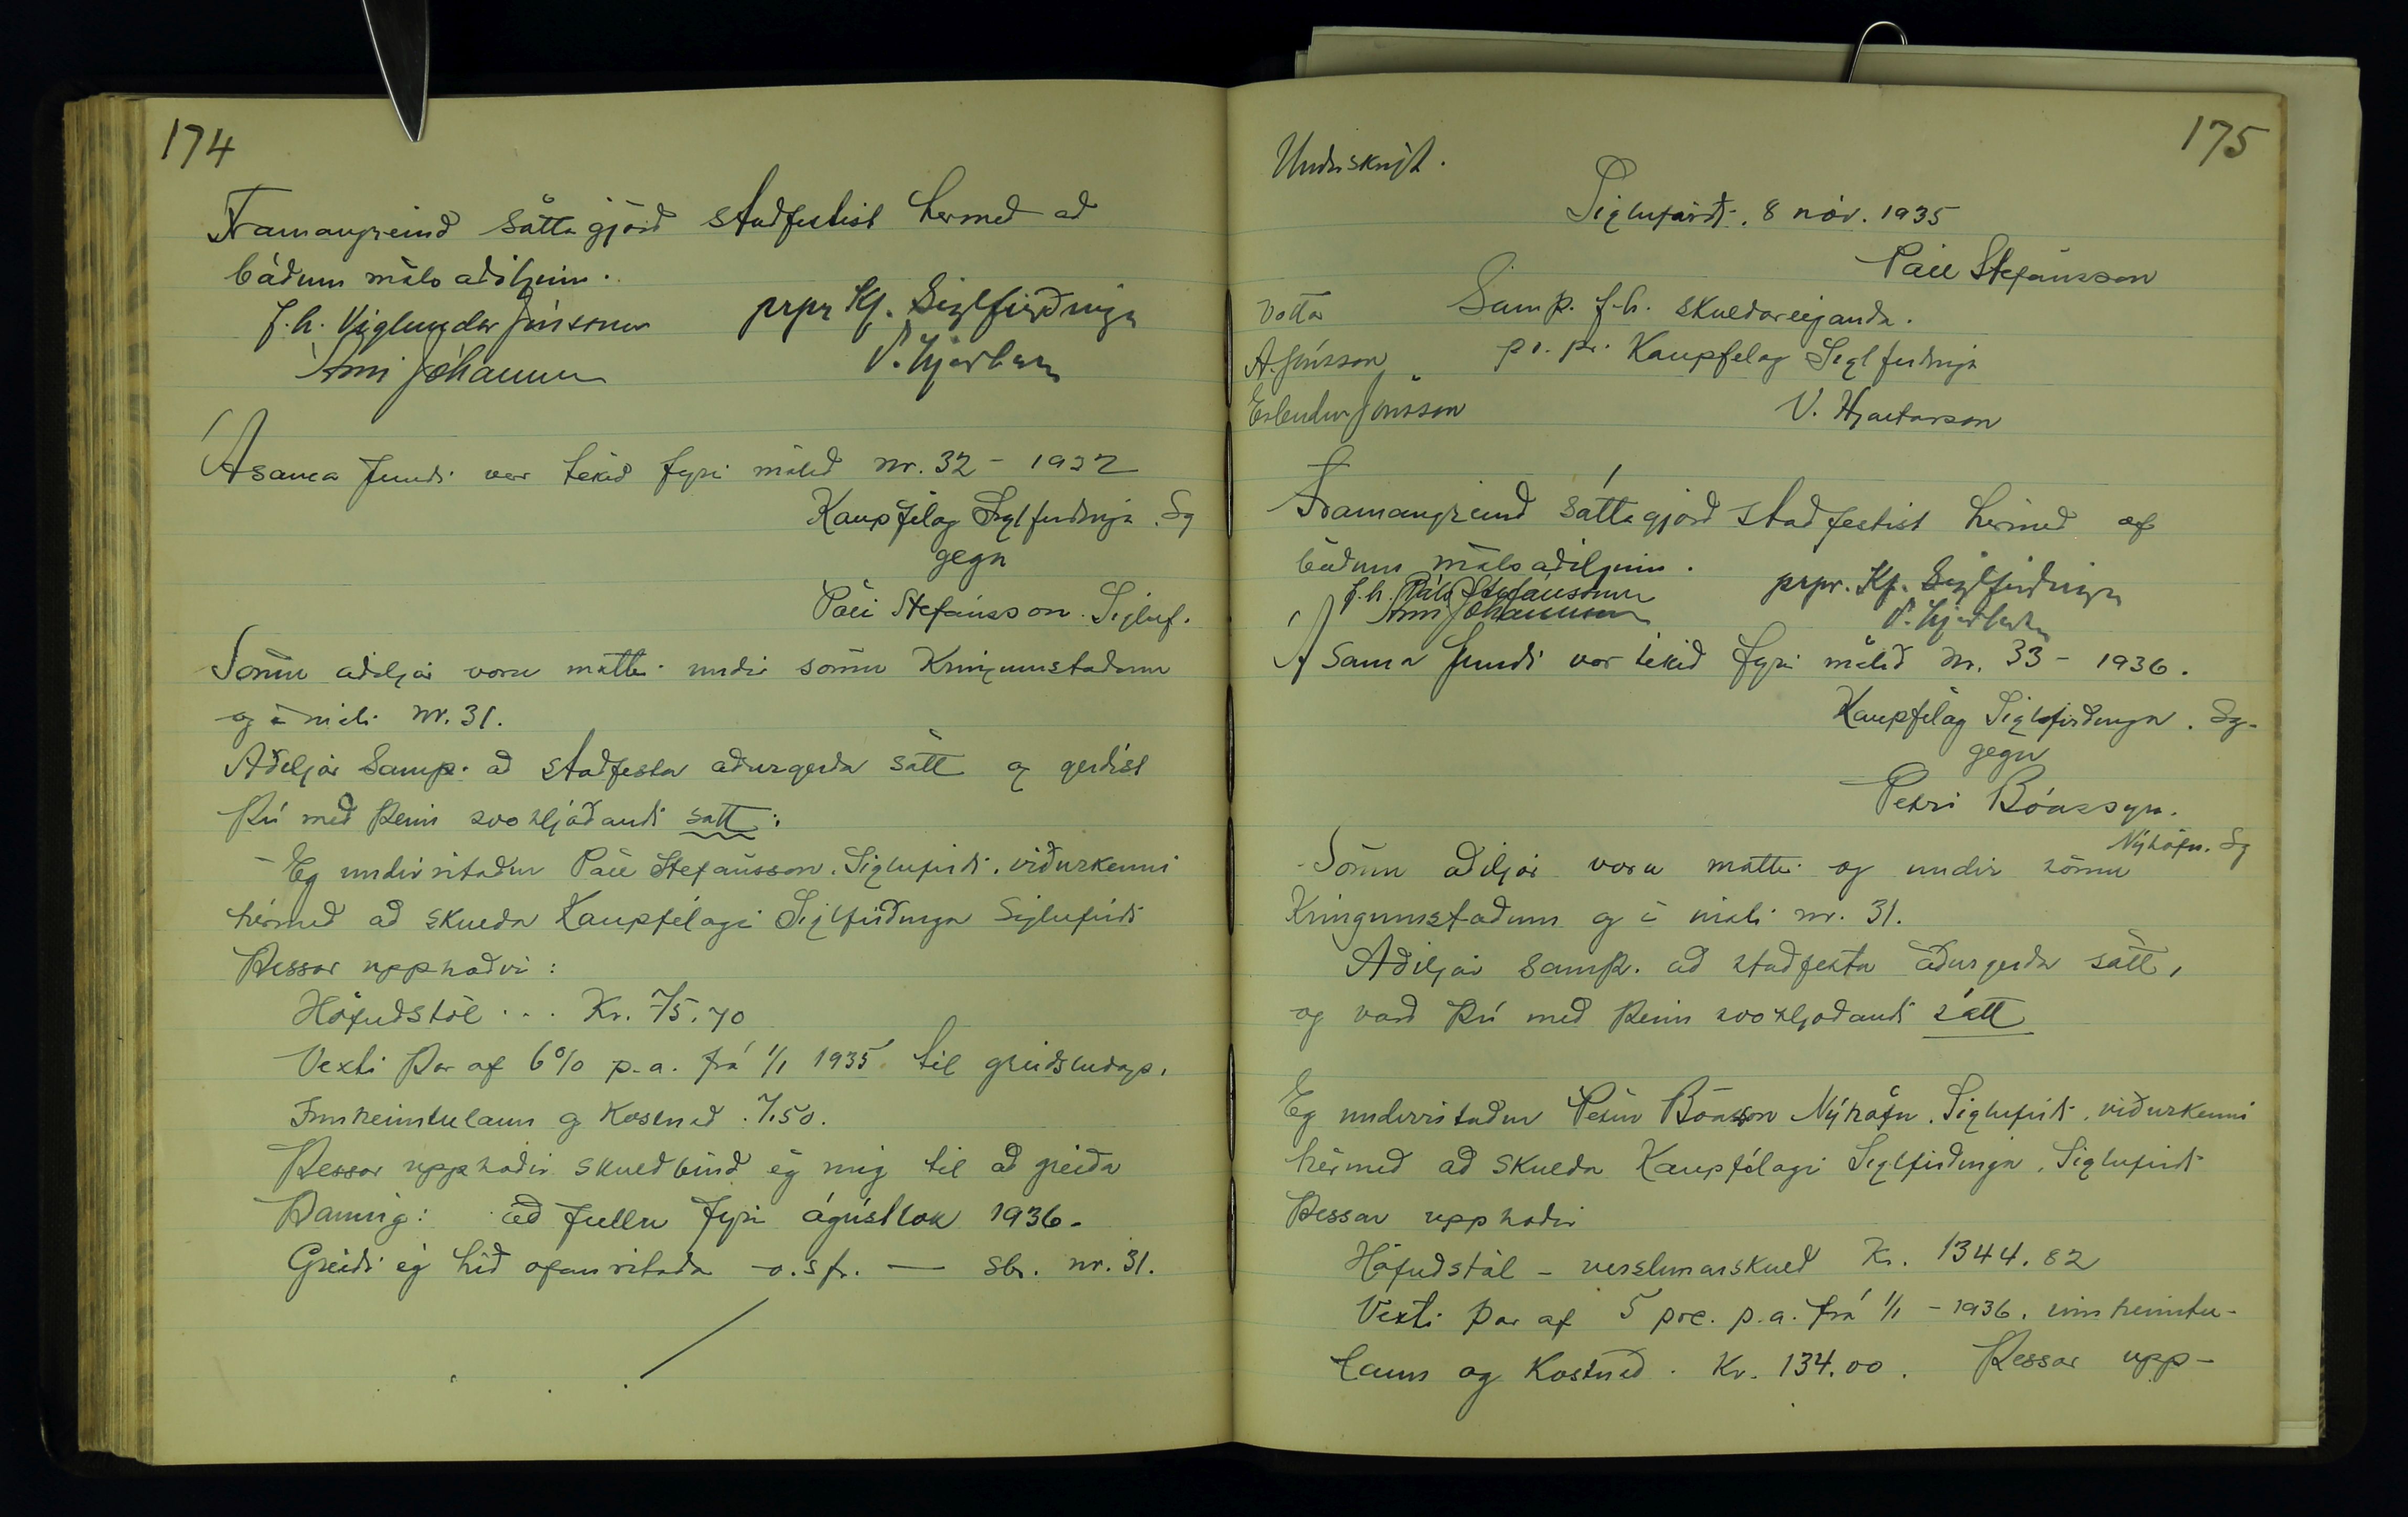 174
Framangreind sáttagjörð staðfestist hermeð að
báðum málsaðiljum.
f.h. Viglundar Jónssonar prpr Kf. Siglfirðinga
Árni Jóhannsson V. Hjartarson
Á sama fundi var tekið fyrir málið nr. 32 - 1937
Kaupfélag Siglfirðinga. Sg
gegn
Páli Stefánsson. Sigluf.
Sömu aðiljar voru mættir undir sömu Kringumstæðum
og í máli nr. 31.
Aðiljar samþ. að staðfesta aðurgerða sátt og gerðist
því með þeim svohljóðandi sátt:
Eg undirritaður Páll Stefánsson. Siglufirði. viðurkenni
hérmeð að skulda Kaupfélagi Siglfirðinga Siglufirði
Þessar upphæðir:
Höfuðstól ... Kr. 75.70
Vexti þar af 6% p.a. frá 1/1 1935 til greiðsludags.
Innheimtulaun og Kostnað. 7.50.
Þessar upphæðir skuldbind ég mig til að greiða
Þannig: að fullu fyrir ágústlok 1936.
Greiði ég hið ofanritaða - o.s.fr. — sbr. nr. 31.
175
Undirskrift.
Siglufirði. 8 nóv. 1935
Páll Stefánsson
Vottar Samþ. f.h. skuldareiganda.
A. Jónsson pr. pr. Kaupfelag Siglfirðinga
Erlendur Jónsson V. Hjartarson
Framangreind sáttagjörð staðfestist hérmeð af
báðum málsaðiljum.
f.h. Páls Stefánssonar prpr. Kf. Siglfirðinga
Árni Jóhannsson V. Hjartarson
Á sama fundi var tekið fyrir málið nr. 33 - 1936.
Kaupfélag Siglfirðinga. Sg.
gegn
Petri Bóassyn.
Nýhöfn. Sg
Sömu aðiljar voru mættir og undir sömu
Kringumstæðum og í máli nr. 31.
Aðiljar samþ. að staðfesta áðurgerða sátt,
og varð því með þeim svohljóðandi sátt
Eg undirritaður Pétur Bóasson Nýhöfn. Siglufirði. viðurkenni
hérmeð að skulda Kaupfélagi Siglfirðinga, Siglufirði
Þessar upphæðir
Höfuðstól - verslunarskuld Kr. 1344.82
Vexti þar af 5 prc. p.a. frá 1/1 - 1936. innheimtu-
laun og Kostnað. Kr. 134.00. Þessar upp-